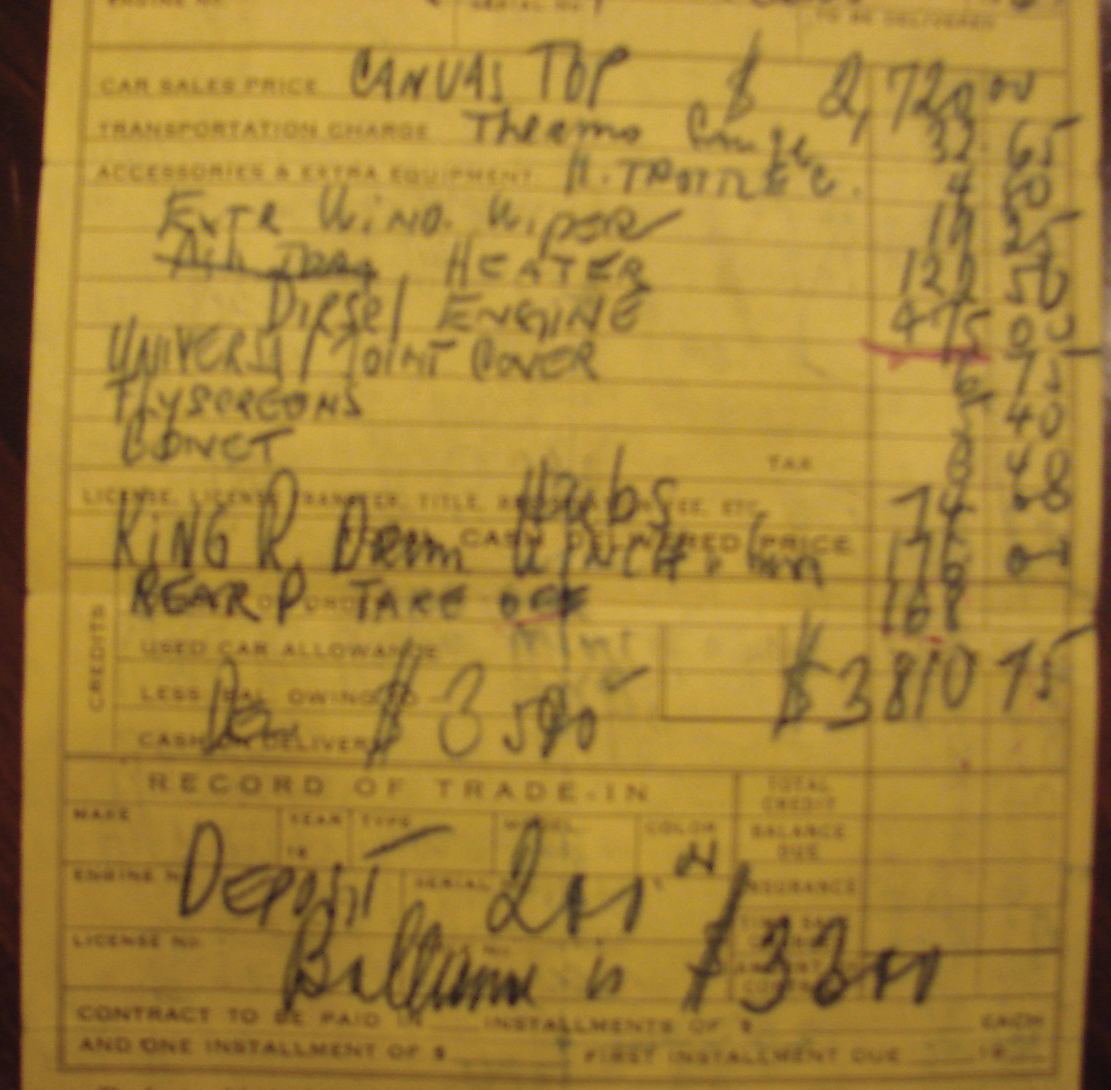 ENGINE NO. SERIAL NO.
TO BE DELIVERED
CAR SALES PRICE CANVAS TOP $ 2,720 00
TRANSPORTATION CHARGE Thermo Gauge 32 65
ACCESSORIES & EXTRA EQUIPMENT H. THROTTLE 4 50
EXTR WIND. WIPER 19 25
HEATER 122 50
DIESEL ENGINE 475 00
UNIVERSJ JOINT COVER 6 75
FLYSCREONS 5 40
BONET TAX 8 48
LICENSE, LICENSE TRANSFER, TITLE, FEE, ETC. Hubs 74 68
KING R. Drum WINCH CASH DELIVERED PRICE 176
REAR P. TAKE OFF 168
CREDITS
USED CAR ALLOWANCE $ 3810 75
LESS BAL. OWING TO $ 3 500
CASH ON DELIVERY
RECORD OF TRADE-IN TOTAL CREDIT
MAKE YEAR TYPE MODEL COLOR BALANCE DUE
19
ENGINE NO. DEPOSIT SERIAL 200 INSURANCE
LICENSE NO. Ballanc is $ 3300
CONTRACT TO BE PAID IN INSTALLMENTS OF $ EACH
AND ONE INSTALLMENT OF $ FIRST INSTALLMENT DUE 19